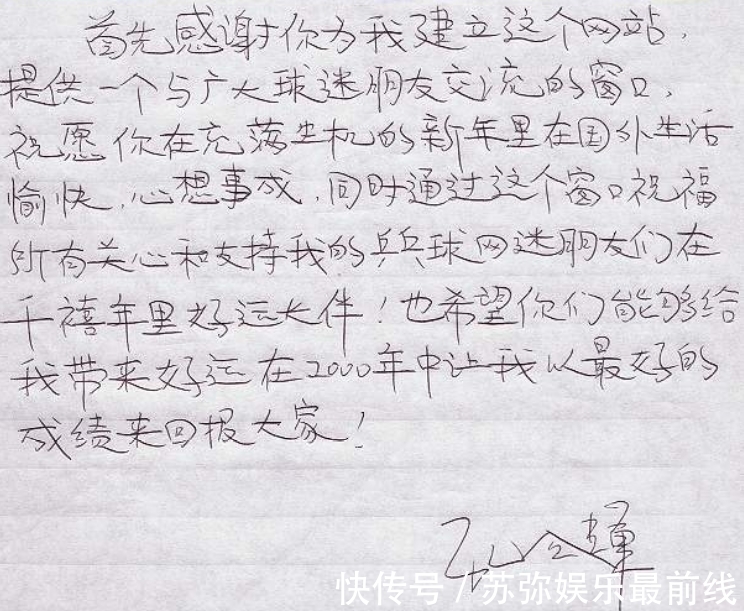 首先感谢你为我建立这个网站,
提供一个与广大球迷朋友交流的窗口,
祝愿你在充满生机的新年里在国外生活
愉快,心想事成,同时通过这个窗口祝福
所有关心和支持我的乒乓球网迷朋友们在
千禧年里好运长伴!也希望你们能够给
我带来好运在2000年中让我以最好的
成绩来回报大家!
孔令辉
快传号/苏弥娱乐最前线